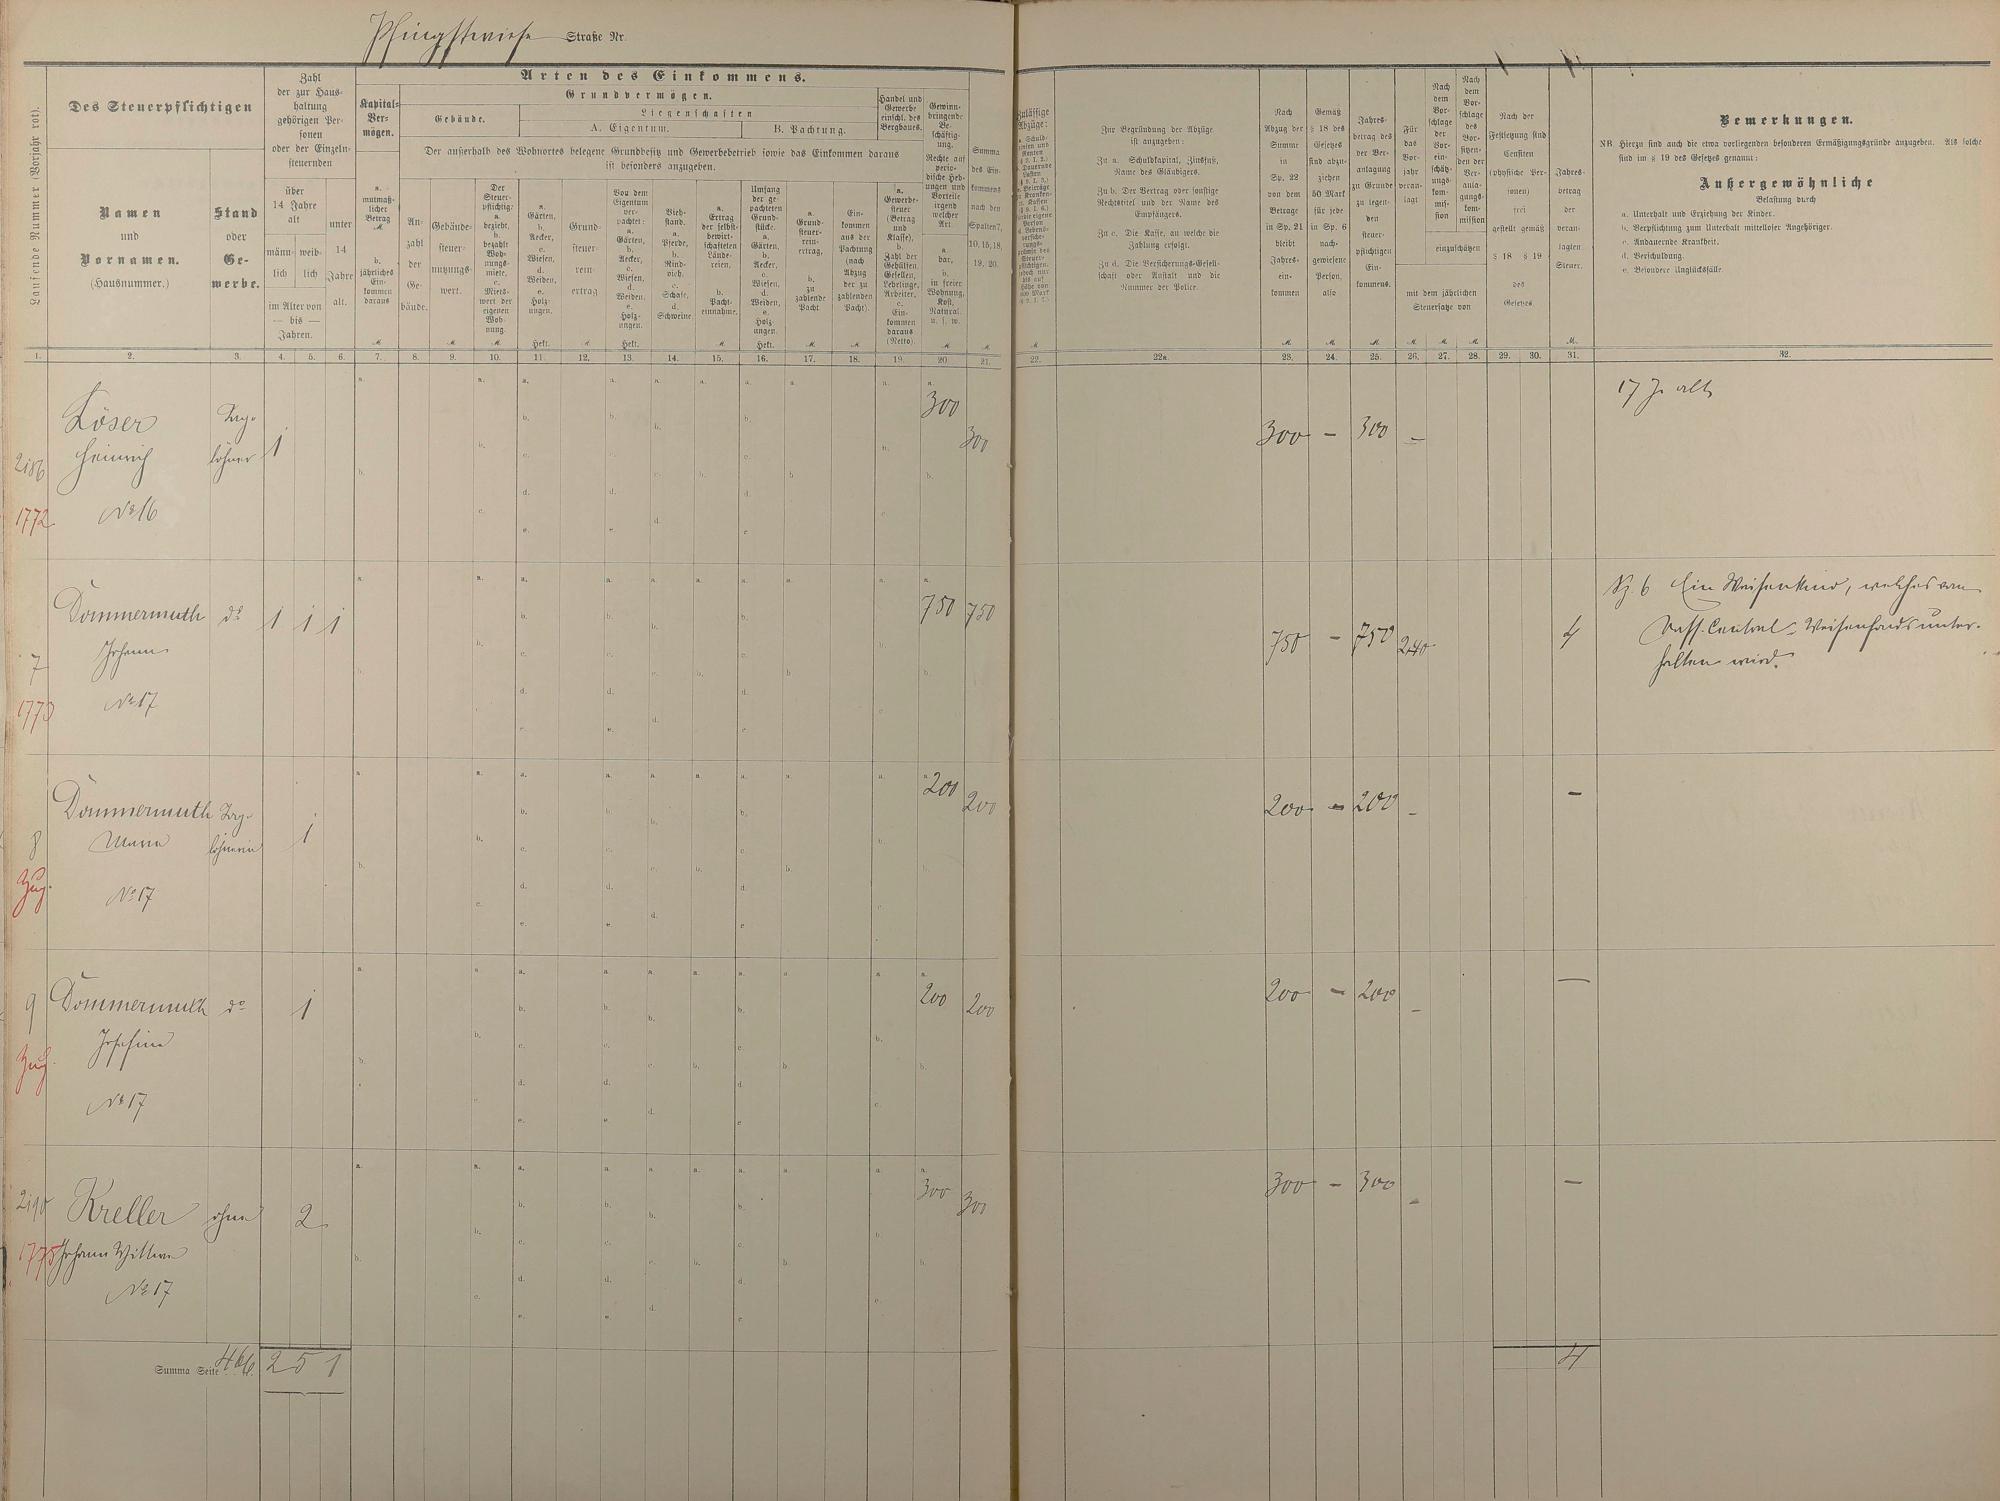 Pfingstwiese Straße Nr.
Laufende Nummer (Vorjahr rot).
Des Steuerpflichtigen
Namen
und
Vornamen.
(Hausnummer.)
Stand
oder
Ge-
werbe.
Zahl
der zur Haus-
haltung
gehörigen Per-
sonen
oder der Einzeln-
steuernden
über
14 Jahre
alt
männ-
lich
weib-
lich
im Alter von
— bis —
Jahren.
unter
14
Jahre
alt.
Arten des Einkommens.
Kapital-
Ver-
mögen.
a.
mutmaß-
licher
Betrag
M
b.
jährliches
Ein-
kommen
daraus
M
Grundvermögen.
Gebäude.
Liegenschaften
A. Eigentum.
B. Pachtung.
Der außerhalb des Wohnortes belegene Grundbesitz und Gewerbebetrieb sowie das Einkommen daraus
ist besonders anzugeben.
An-
zahl
der
Ge-
bäude.
Gebäude-
steuer-
nutzungs-
wert.
M
Der
Steuer-
pflichtige:
a.
bezieht,
b.
bezahlt
Woh-
nungs-
miete,
c.
Miets-
wert der
eigenen
Woh-
nung.
M
a.
Gärten,
b.
Aecker,
c.
Wiesen,
d.
Weiden,
e.
Holz-
ungen.
Hekt.
Grund-
steuer-
rein-
ertrag
M
Von dem
Eigentum
ver-
pachtet:
a.
Gärten,
b.
Aecker,
c.
Wiesen,
d.
Weiden,
e.
Holz-
ungen.
Hekt.
Vieh-
stand.
a.
Pferde,
b.
Rind-
vieh,
c.
Schafe,
d.
Schweine.
a.
Ertrag
der selbst-
bewirt-
schafteten
Lände-
reien,
b.
Pacht-
einnahme.
M
Umfang
der ge-
pachteten
Grund-
stücke.
a.
Gärten,
b.
Aecker,
c.
Wiesen,
d.
Weiden,
e.
Holz-
ungen.
Hekt.
a.
Grund-
steuer-
rein-
ertrag,
b.
zu
zahlende
Pacht.
M
Ein-
kommen
aus der
Pachtung
(nach
Abzug
der zu
zahlenden
Pacht).
M
Handel und
Gewerbe
einschl. des
Bergbaues.
a.
Gewerbe-
steuer
(Betrag
und
Klasse),
b.
Zahl der
Gehülfen,
Gesellen,
Lehrlinge,
Arbeiter,
c.
Ein-
kommen
daraus
(Netto).
Gewinn-
bringende
Be-
schäftig-
ung.
Rechte auf
perio-
dische Heb-
ungen und
Vorteile
irgend
welcher
Art.
a.
bar,
b.
in freier
Wohnung,
Kost,
Natural.
u. s. w.
M
Summa
des Ein-
kommens
nach den
Spalten 7,
10, 15, 18,
19, 20.
M
Zulässige
Abzüge:
M
Zur Begründung der Abzüge
ist anzugeben:
Zu a. Schuldkapital, Zinsfuß,
Name des Gläubigers.
Zu b. Der Vertrag oder sonstige
Rechtstitel und der Name des
Empfängers.
Zu c. Die Kasse, an welche die
Zahlung erfolgt.
Zu d. Die Versicherungs-Gesell-
schaft oder Anstalt und die
Nummer der Police.
Nach
Abzug der
Summe
in
Sp. 22
von dem
Betrage
in Sp. 21
bleibt
Jahres-
ein-
kommen
M
Gemäß
§ 18 des
Gesetzes
sind abzu-
ziehen
50 Mark
für jede
in Sp. 6
nach-
gewiesene
Person,
also
M
Jahres-
betrag des
der Ver-
anlagung
zu Grunde
zu legen-
den
steuer-
pflichtigen
Ein-
kommens.
M
Für
das
Vor-
jahr
veran-
lagt
M
Nach
dem
Vor-
schlage
der
Vor-
ein-
schätz-
ungs-
kom-
mis-
sion
M
Nach
dem
Vor-
schlage
des
Vor-
sitzen-
den der
Ver-
anla-
gungs-
kom-
mission
M
einzuschätzen
mit dem jährlichen
Steuersatze von
Nach der
Festsetzung sind
Censiten
(physische Per-
sonen)
frei
gestellt gemäß
§ 18 § 19
des
Gesetzes.
Jahres-
betrag
der
veran-
lagten
Steuer.
M.
Bemerkungen.
NB. Hierzu sind auch die etwa vorliegenden besonderen Ermäßigungsgründe anzugeben. Als solche
sind im § 19 des Gesetzes genannt:
Außergewöhnliche
Belastung durch
a. Unterhalt und Erziehung der Kinder.
b. Verpflichtung zum Unterhalt mittelloser Angehöriger.
c. Andauernde Krankheit.
d. Verschuldung.
e. Besondere Unglücksfälle.
1. 2. 3. 4. 5. 6. 7. 8. 9. 10. 11. 12. 13. 14. 15. 16. 17. 18. 19. 20. 21. 22. 22a. 23. 24. 25. 26. 27. 28. 29. 30. 31. 32.
2186 Löser Tag- 1 300 300 300 — 300 — 17 J. alt
Heinrich löhner
1772 No 16
7 Dommermuth do 1 1 1 750 750 750 — 750 240 4 Sp. 6 Ein Weisenkind, welches vom
Johann Nass. Central-Weisenfonds unter-
1773 No 17 halten wird.
8 Dommermuth Tag- 1 200 200 200 — 200 — —
Maria löhnerin
Zug. No 17
9 Dommermuth do 1 200 200 200 — 200 — —
Josefine
Zug. No 17
2190 Kreller ohne 2 300 300 300 — 300 — —
1775 Johann Wittwe
No 17
Summa Seite 466. 2 5 1 4